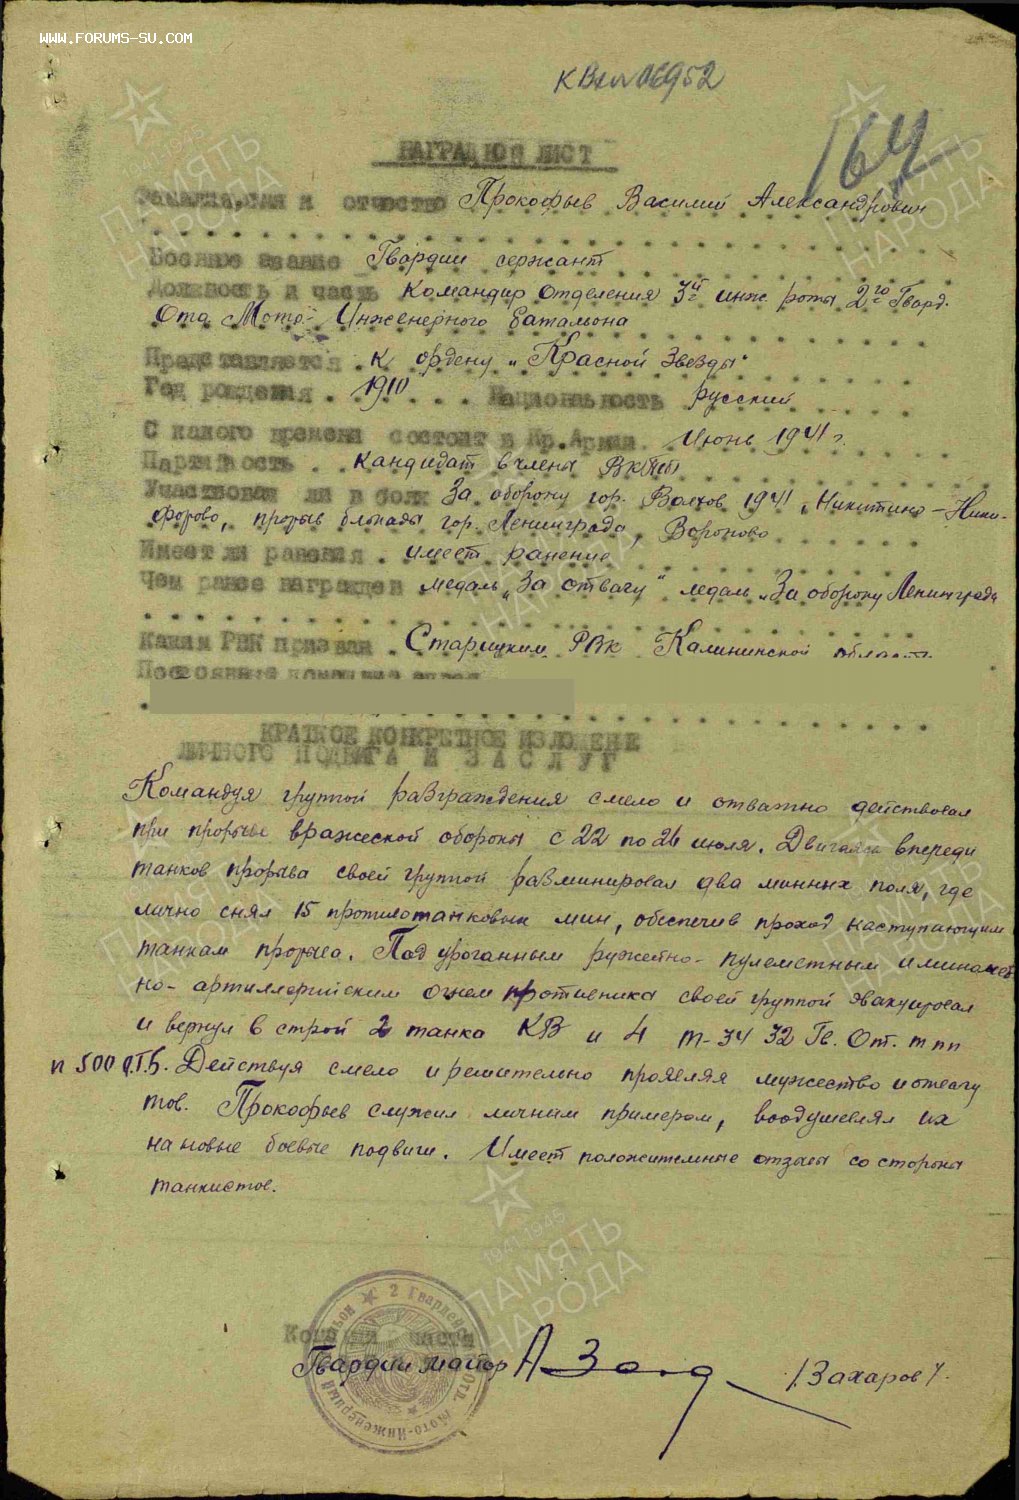 WWW.FORUMS-SU.COM
К Вх №06952
164
НАГРАДНОЙ ЛИСТ
Фамилия, имя и отчество Прокофьев Василий Александрович
Военное звание Гвардии сержант
Должность и часть Командир отделения 3ей инж роты 2го Гвард.
Отд Мото-Инженерного батальона
Представляется к ордену „Красной Звезды"
Год рождения 1910 Национальность русский
С какого времени состоит в Кр.Армии Июнь 1941 г.
Партийность кандидат в члены ВКПб
Участвовал ли в боях За оборону гор. Волхов 1941, Никитино-Ники-
форово, прорыв блокады гор. Ленинграда, Вороново
Имеет ли ранения имеет ранение
Чем ранее награжден медаль „За отвагу" медаль „За оборону Ленинграда
Каким РВК призван Старицким РВК Калининской области
КРАТКОЕ КОНКРЕТНОЕ ИЗЛОЖЕНИЕ
ЛИЧНОГО ПОДВИГА И ЗАСЛУГ
Командуя группой разграждения смело и отважно действовал
при прорыве вражеской обороны с 22 по 26 июля. Двигаясь впереди
танков прорыва своей группой разминировал два минных поля, где
лично снял 15 противотанковых мин, обеспечив проход наступающим
танкам прорыва. Под ураганным ружейно-пулеметным и миномет
но-артиллерийским огнем противника своей группой эвакуировал
и вернул в строй 2 танка КВ и 4 т-34 32 Гв. От. тпп
и 500 О.Т.Б. Действуя смело и решительно проявляя мужество и отвагу
тов. Прокофьев служил личным примером, воодушевлял их
на новые боевые подвиги. Имеет положительные отзывы со стороны
танкистов.
Командир части
Гвардии майор /Захаров/
2 Гвардейский отд. Мото-Инженерный батальон
1941-1945
ПАМЯТЬ
НАРОДА